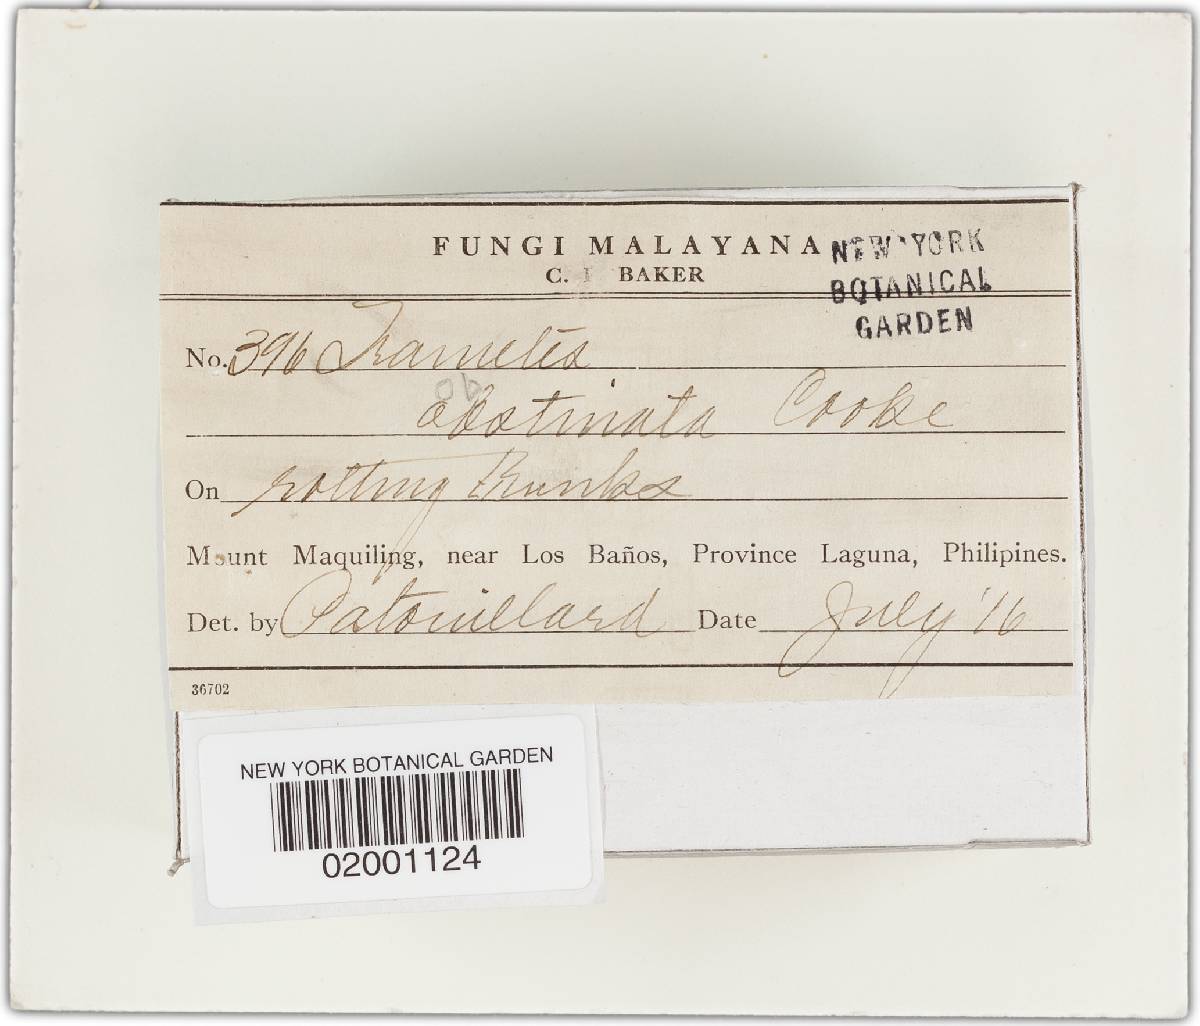 FUNGI MALAYANA
C. F. BAKER
NEW YORK
BOTANICAL
GARDEN
No. 396 Trametes
ob
obstinata Cooke
On rotting trunks
Mount Maquiling, near Los Baños, Province Laguna, Philipines.
Det. by Patouillard Date July '16
36702
NEW YORK BOTANICAL GARDEN
02001124